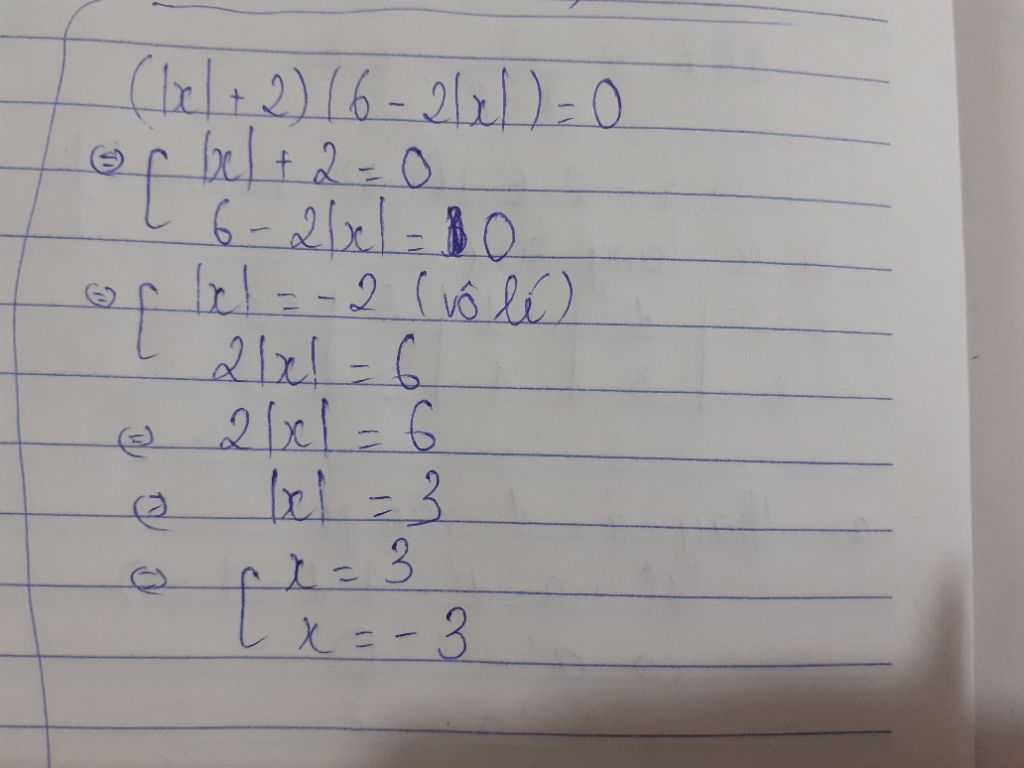 (|x| + 2)(6 - 2|x|) = 0
⇔ [ |x| + 2 = 0
6 - 2|x| = 0
⇔ [ |x| = -2 (vô lí)
2|x| = 6
⇔ 2|x| = 6
⇔ |x| = 3
⇔ [ x = 3
x = -3